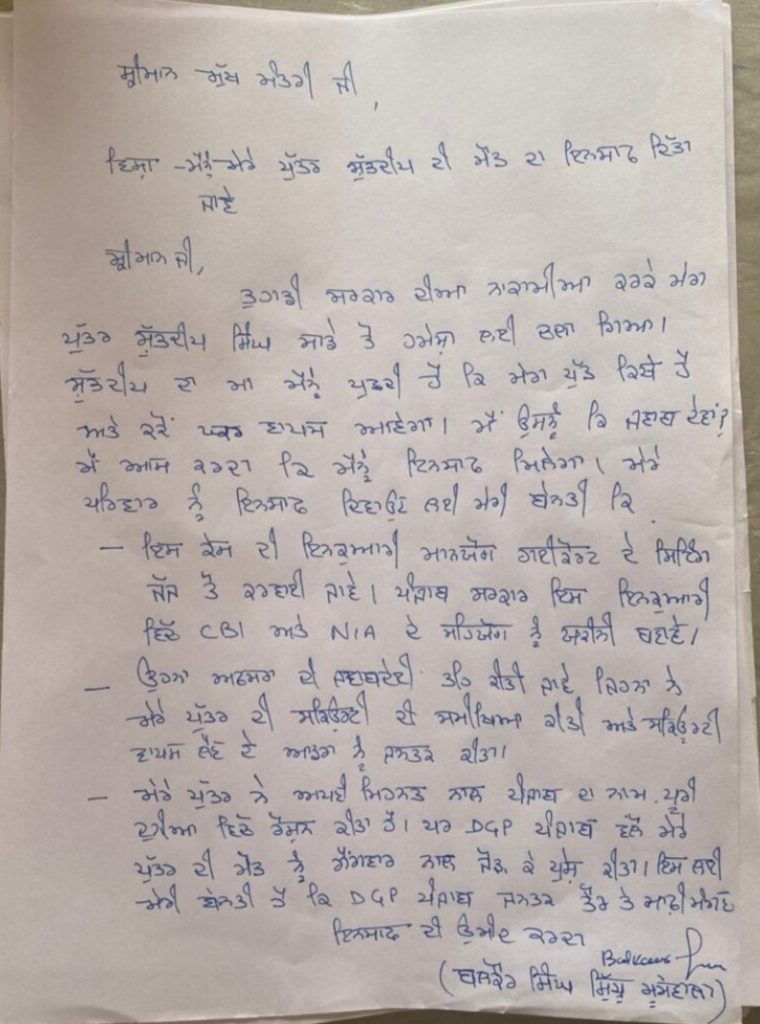 ਸ਼੍ਰੀਮਾਨ ਮੁੱਖ ਮੰਤਰੀ ਜੀ,
ਵਿਸ਼ਾ - ਮੈਨੂੰ ਮੇਰੇ ਪੁੱਤਰ ਸ਼ੁੱਭਦੀਪ ਦੀ ਮੌਤ ਦਾ ਇਨਸਾਫ ਦਿੱਤਾ
ਜਾਵੇ
ਸ਼੍ਰੀਮਾਨ ਜੀ,
ਤੁਹਾਡੀ ਸਰਕਾਰ ਦੀਆ ਨਾਕਾਮੀਆ ਕਰਕੇ ਮੇਰਾ
ਪੁੱਤਰ ਸ਼ੁੱਭਦੀਪ ਸਿੰਘ ਸਾਡੇ ਤੋਂ ਹਮੇਸ਼ਾ ਲਈ ਚਲਾ ਗਿਆ।
ਸ਼ੁੱਭਦੀਪ ਦਾ ਮਾ ਮੈਨੂੰ ਪੁਛਦੀ ਹੈ ਕਿ ਮੇਰਾ ਪੁੱਤ ਕਿਥੇ ਹੈ
ਅਤੇ ਕਦੋਂ ਘਰ ਵਾਪਸ ਆਵੇਗਾ। ਮੈਂ ਉਸਨੂੰ ਕਿ ਜਵਾਬ ਦੇਵਾਂ?
ਮੈਂ ਆਸ ਕਰਦਾ ਕਿ ਮੈਨੂੰ ਇਨਸਾਫ ਮਿਲੇਗਾ। ਮੇਰੇ
ਪਰਿਵਾਰ ਨੂੰ ਇਨਸਾਫ ਦਿਵਾਉਣ ਲਈ ਮੇਰੀ ਬੇਨਤੀ ਕਿ
- ਇਸ ਕੇਸ ਦੀ ਇਨਕੁਆਰੀ ਮਾਨਯੋਗ ਹਾਈਕੋਰਟ ਦੇ ਸਿਟਿੰਗ
ਜੱਜ ਤੋਂ ਕਰਵਾਈ ਜਾਵੇ। ਪੰਜਾਬ ਸਰਕਾਰ ਇਸ ਇਨਕੁਆਰੀ
ਵਿੱਚ CBI ਅਤੇ NIA ਦੇ ਸਹਿਯੋਗ ਨੂੰ ਯਕੀਨੀ ਬਣਾਵੇ।
- ਉਹਨਾ ਅਫਸਰਾ ਦੀ ਜਵਾਬਦੇਹੀ ਤਹਿ ਕੀਤੀ ਜਾਵੇ ਜਿਹਨਾ ਨੇ
ਮੇਰੇ ਪੁੱਤਰ ਦੀ ਸਕਿਉਰਟੀ ਦੀ ਸਮੀਖਿਆ ਕੀਤੀ ਅਤੇ ਸਕਿਉਰਟੀ
ਵਾਪਸ ਲੈਣ ਦੇ ਆਡਰਾ ਨੂੰ ਜਨਤਕ ਕੀਤਾ।
- ਮੇਰੇ ਪੁੱਤਰ ਨੇ ਅਪਣੀ ਮਿਹਨਤ ਨਾਲ ਪੰਜਾਬ ਦਾ ਨਾਮ ਪੂਰੀ
ਦੁਨੀਆ ਵਿੱਚ ਰੋਸ਼ਨ ਕੀਤਾ ਹੈ। ਪਰ DGP ਪੰਜਾਬ ਵਲੋਂ ਮੇਰੇ
ਪੁੱਤਰ ਦੀ ਮੌਤ ਨੂੰ ਗੈਂਗਵਾਰ ਨਾਲ ਜੋੜ ਕੇ ਪੇਸ਼ ਕੀਤਾ। ਇਸ ਲਈ
ਮੇਰੀ ਬੇਨਤੀ ਹੈ ਕਿ DGP ਪੰਜਾਬ ਜਨਤਕ ਤੌਰ ਤੇ ਮਾਫ਼ੀ ਮੰਗਣ
ਇਨਸਾਫ ਦੀ ਉਮੀਦ ਕਰਦਾ
Balkaur
(ਬਲਕੌਰ ਸਿੰਘ ਸਿੱਧੂ ਮੂਸੇਵਾਲਾ)